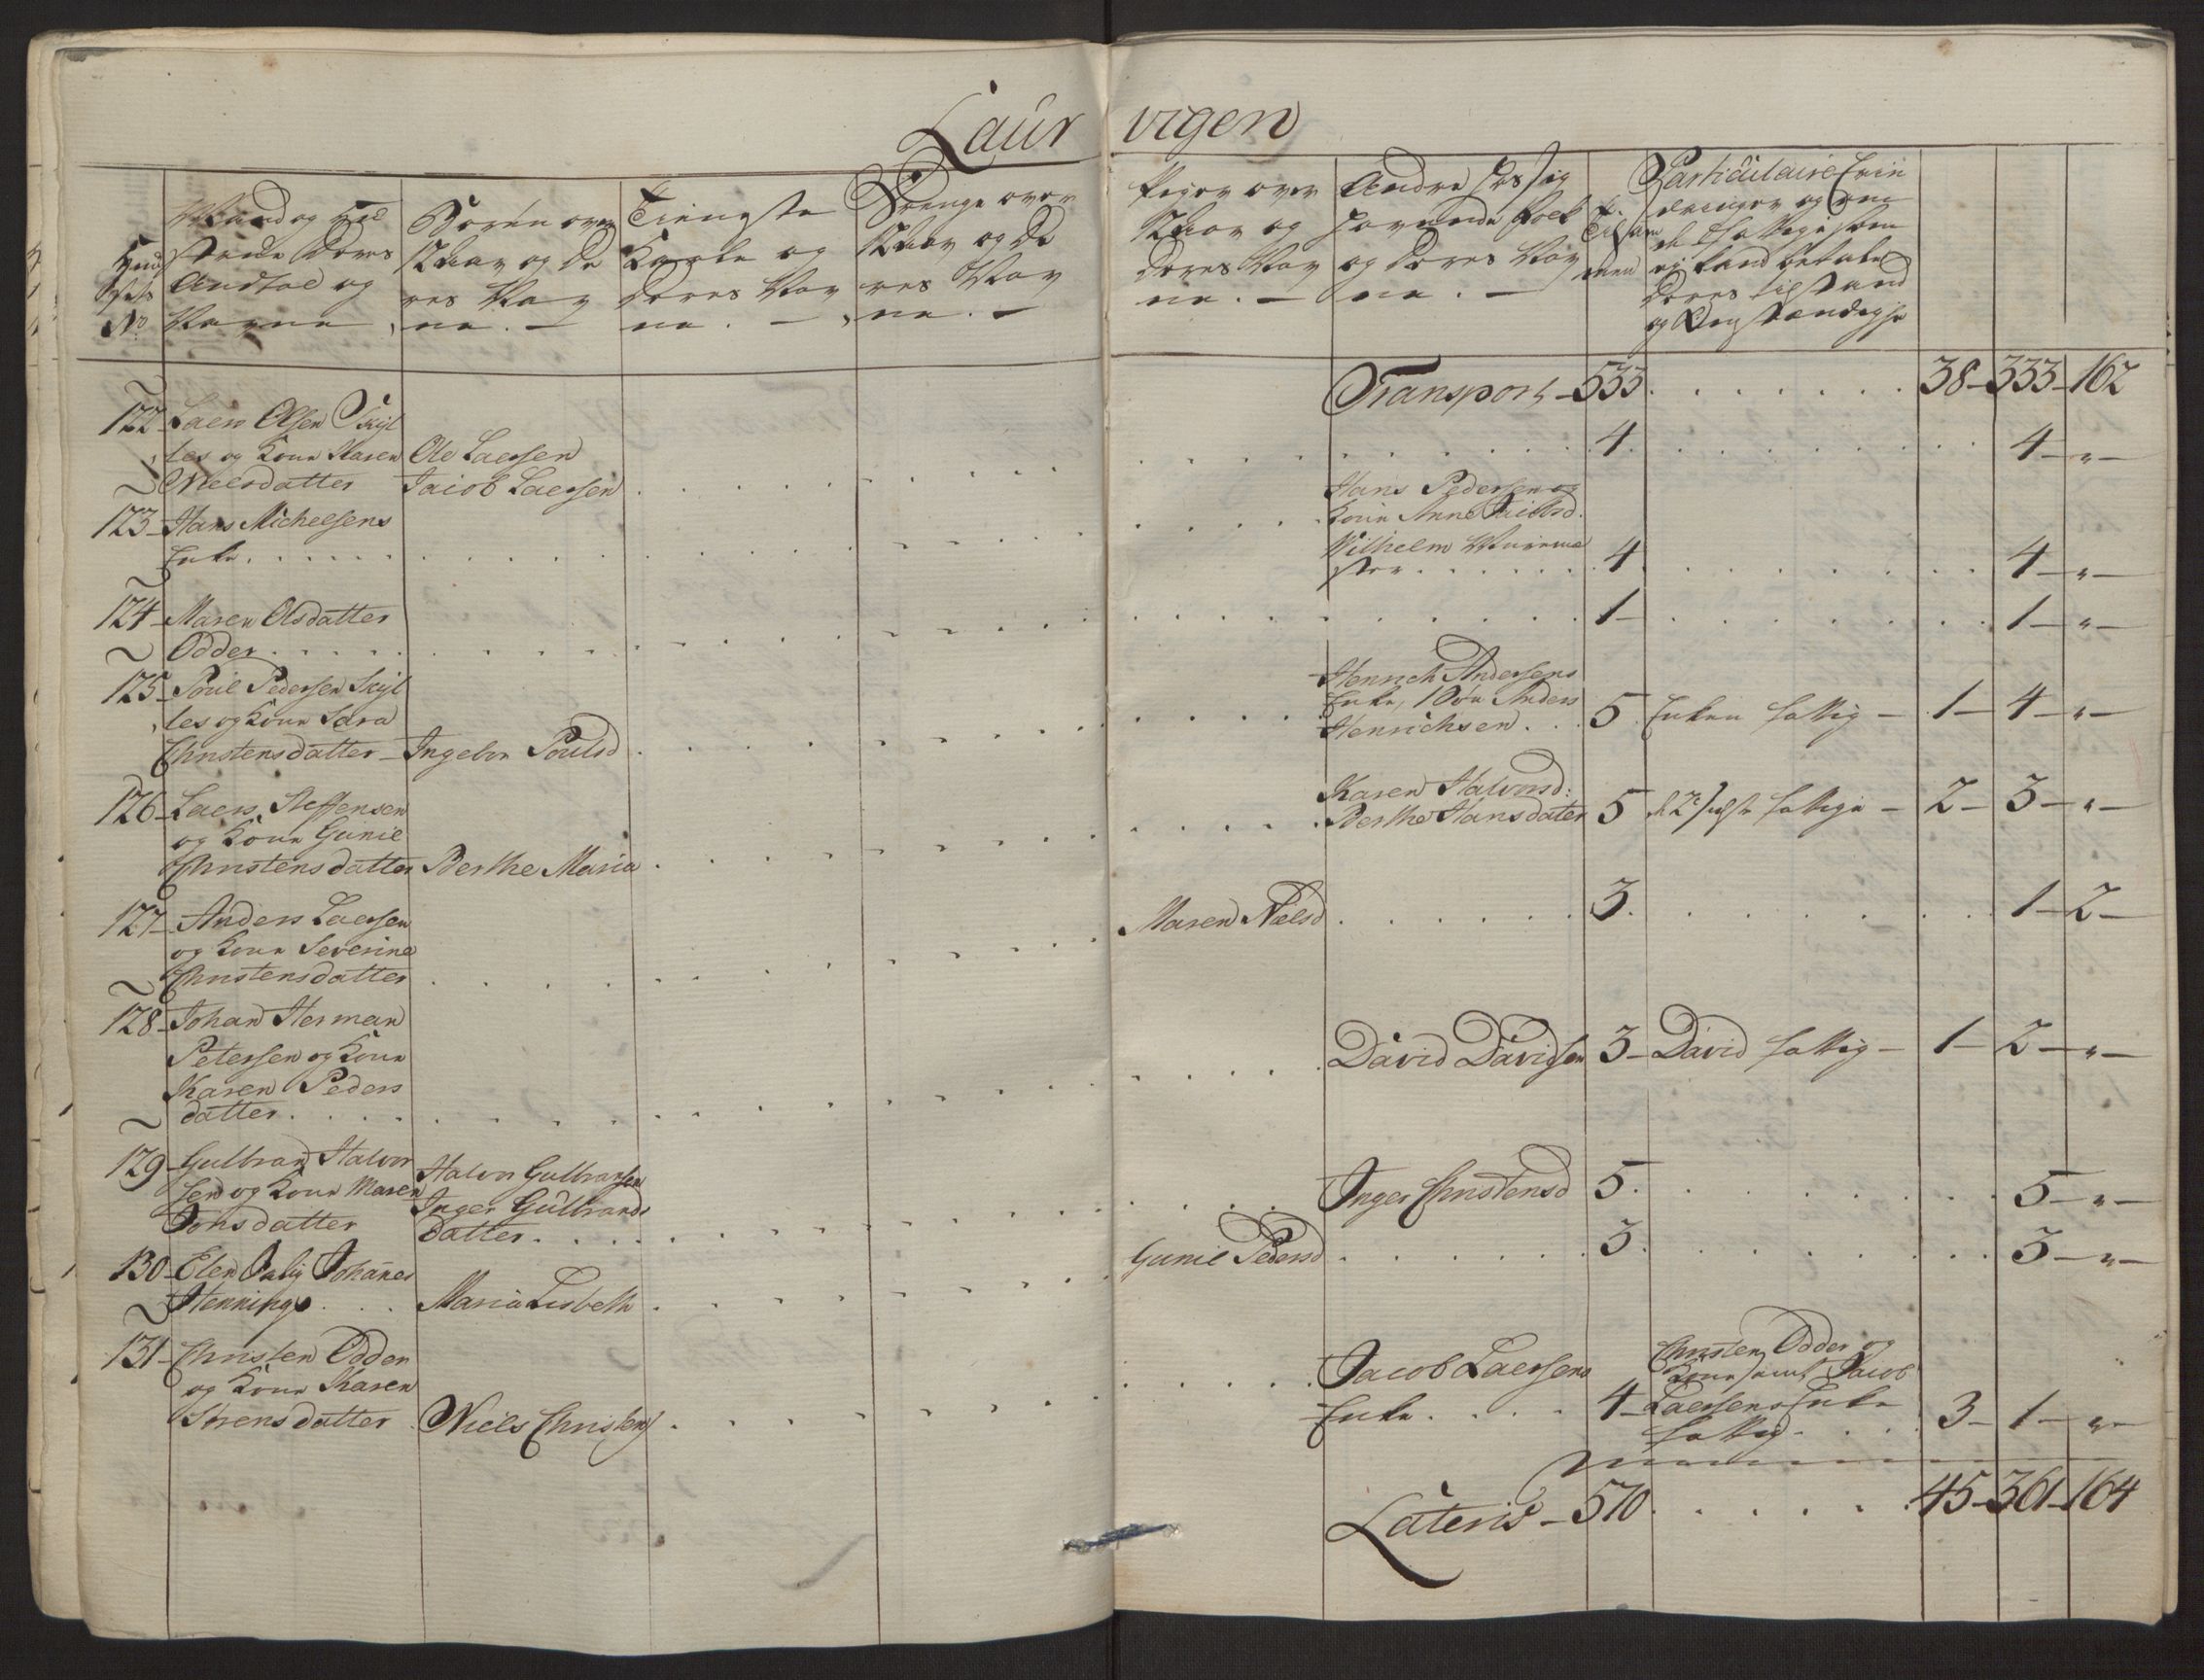 Laurvigen
Huusets No
Mand og Hustrue deres Andtal og Navne
Børn over 12 Aar og deres Navne. —
Tieneste Karle og deres Navne. —
Drenge over 12 Aar og deres Navne. —
Piger over 12 Aar og deres Navne. —
Andre hos sig havende Folk og deres Navne. —
Tilsammen
Particulaire Erindringer og om de fattige som ej kand betale deres tilstand og
Transport — 533 . . . . . . . 38 — 333 — 162
122 — Laers Olsen Skyt
tes og Kone Karen
Nielsdatter
Ole Laersen
Jacob Laersen . . . . . . . . 4 . . . . . . . 4 — " —
123 — Hans Michelsens
Enke . . . . . . . . .
Hans Pedersen og
Kone Anne Jacobsd.
Wilhelm Murme
ster . . . . . . . 4 . . . . . . . 4 — " —
124 — Maren Olsdatter
Odder . . . . . . . . . . 1 — . . . . . . . 1 — " —
125 — Poul Pedersen Skyt
tes og Kone Sara
Christensdatter — Ingebor Poulsd . . . . . . .
Henrich Andersens
Enke, 1 Søn Anders
Henrichsen . . . 5 . Enken fattig — 1 — 4 — " —
126 — Laers Steffensen
og Kone Gunil
Christensdatter Berthe Maria . . . . . . .
Karen Halvorsd:
Berthe Hansdater 5 de 2de sidste fattige — 2 — 3 — " —
127 — Anders Laersen
og Kone Severine
Christensdatter . . . . . . .
Maren Nielsd . . . . . . 3 . . . . . . . 1 — 2 —
128 — Johan Herman
Petersen og Kone
Karen Peders
datter . . . . . . . . .
David Davidsen 3 — David fattig — 1 — 2 — " —
129 — Gulbran Halvor
sen og Kone Maren
Tonsdatter
Halvor Gulbransen
Inger Gulbrands
datter . . . . . . . .
Inger Christensd 5 . . . . . . . 5 — " —
130 — Elen Salig Johanes
Hennings . . . Maria Lisbeth . . . . . . .
Gunil Pedersd . . . . . . 3 . . . . . . . 3 — " —
131 — Christen Odder
og Kone Karen
Sørensdatter Niels Christens . . . . . . .
Jacob Laersens
Enke . . . . 4 —
Christen Odder og
Kone samt Jacob
Laersens Enke
fattig . . . . 3 — 1 — " —
Lateris — 570 . . . . . . 45 — 361 — 164